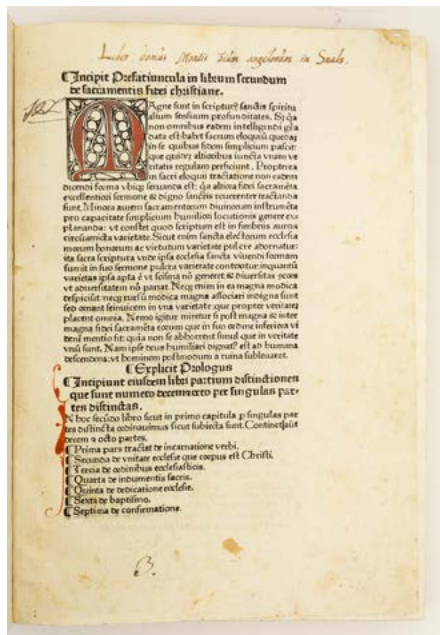 Liber domus Montis omnium angelorum in Snals.
¶Incipit Prefatiuncula in librum secundum
de sacramentis fidei christiane.
MAgne sunt in scripturę sanctis spiritu
alium sensuum profunditates. Si qa
non omnibus eadem intelligendi gra
data est habet sacrum eloquiū quedaȝ
in se quibus fidem simplicium pascit
que quitrȝ altioribus iuncta vnam ve
ritatis regulam perficiunt. Propterea
in sacri eloquii tractatione non eadem
dicendi forma vbiqȝ seruanda est: qa altiora fidei sacramēta
excellentiori sermone & digno sanctis reuerenter tractanda
sunt. Minora autem sacramentorum diuinorum instrumēta
pro capacitate simplicium humiliori locutionis genere ex
plananda: vt constet quod scriptum est in fimbriis aureis
circūamicta varietate. Sicut enim sancta electorum ecclesia
morum bonorum ac virtutum varietate pulcre adornatur:
ita sacra scriptura vnde ipsa ecclesia sancta viuendi formam
sumit in suo sermone pulcra varietate contexitur: inquantū
varietas ipsa apta é vt scismā nō generet & diuersitas decora
vt aduersitatem nō pariat. Neqȝ enim in ea magna modica
despiciūt: neqȝ rursū modica magna associari indigna sunt
sed omnia seinuicem in vna varietate: que propter veritatē
placent omnia. Nemo igitur miretur si post magna & inter
magna fidei sacramēta eorum que in suo ordine inferiora vi
dent mentio fit: quia non se abhorrent simul que in veritate
vnū sunt. Nam ipse deus humiliari dignatꝰ est ad humana
descendens: vt hominem postmodum a ruina subleuaret.
¶Explicit Prologus
¶Incipiunt eiusdem libri partium distinctiones
que sunt numero decemocto per singulas par-
tes distinctas.
IN hoc secūdo libro sicut in primo capitula p singulas par
tes distīcta ordinauimus sicut subiecta sunt. Continet aūt
decem & octo partes.
¶Prima pars tractat de incarnatione verbi.
¶Secunda de vnitate ecclesie que corpus est Christi.
¶Tercia de ordinibus ecclesiasticis.
¶Quarta de indumentis sacris.
¶Quinta de dedicatione ecclesie.
¶Sexta de baptismo.
¶Septima de confirmatione.
B.